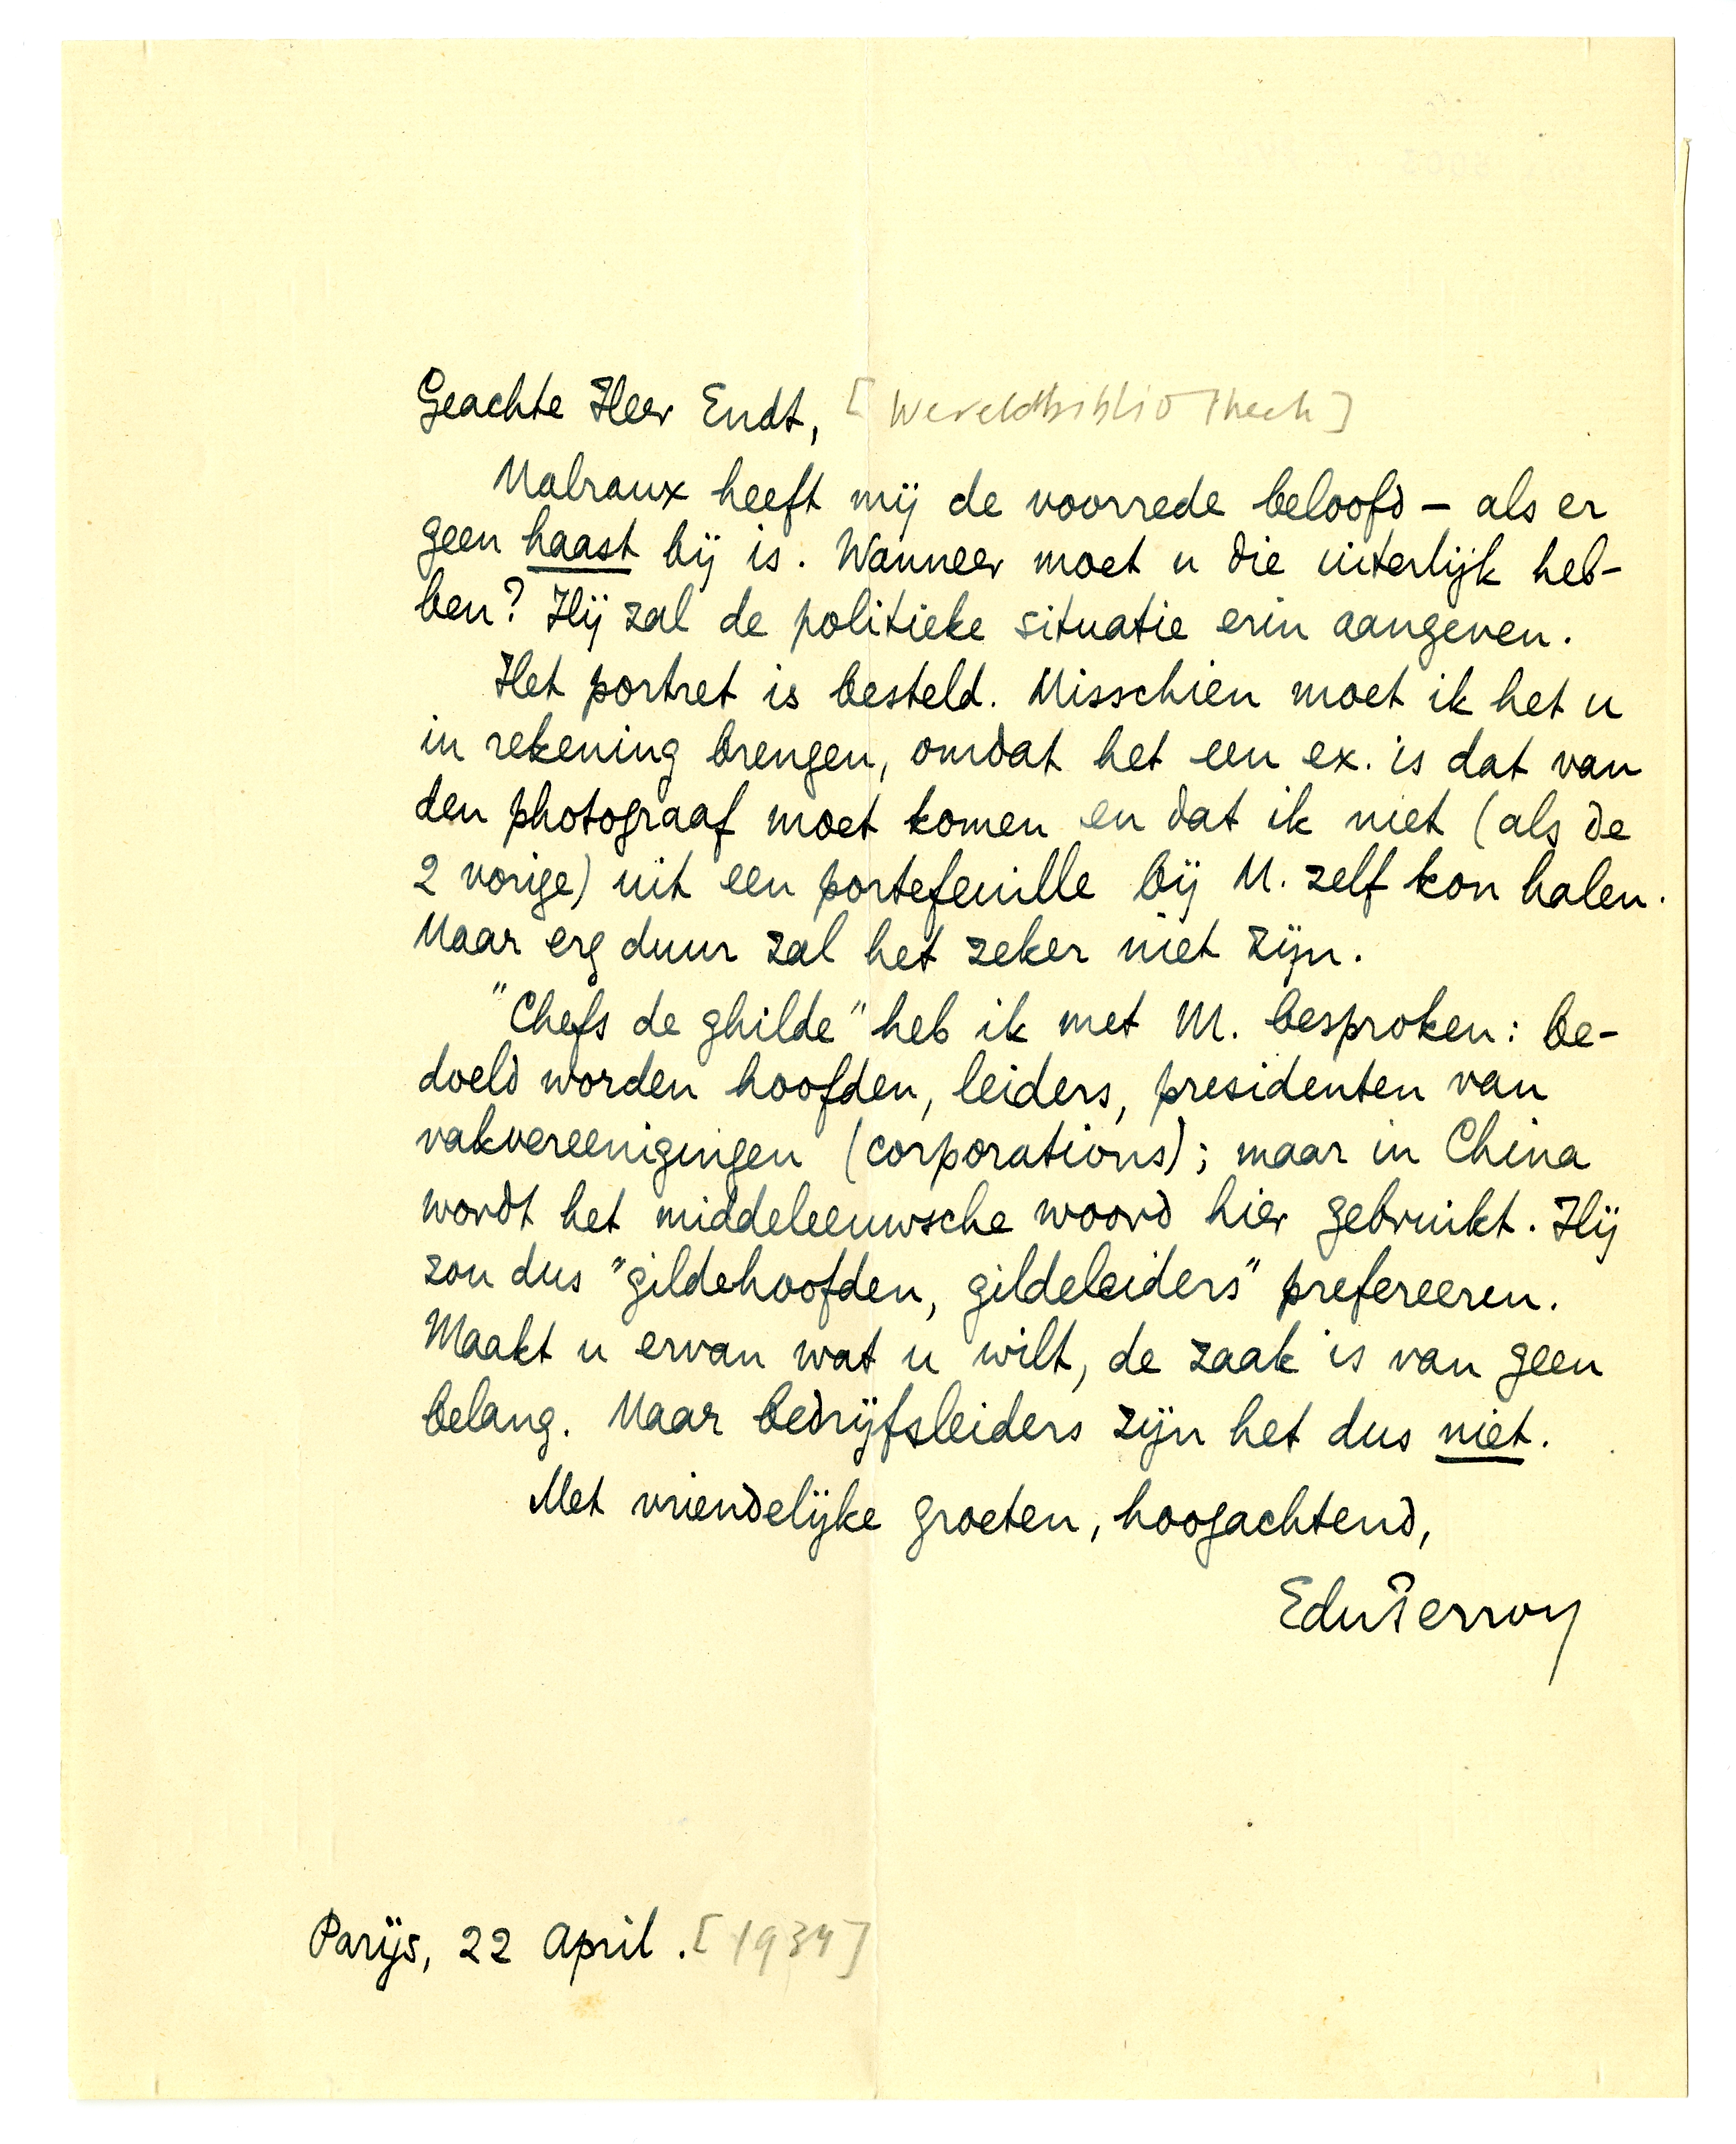 Geachte Heer Endt, [Wereldbibliotheek]
Malraux heeft mij de voorrede beloofd – als er
geen haast bij is. Wanneer moet u die uiterlijk heb-
ben? Hij zal de politieke situatie erin aangeven.
Het portret is besteld. Misschien moet ik het u
in rekening brengen, omdat het een ex. is dat van
den photograaf moet komen en dat ik niet (als de
2 vorige) uit een portefeuille bij M. zelf kon halen.
Maar erg duur zal het zeker niet zijn.
"Chefs de ghilde" heb ik met M. besproken: be-
doeld worden hoofden, leiders, presidenten van
vakvereenigingen (corporations); maar in China
wordt het middeleeuwsche woord hier gebruikt. Hij
zou dus "gildehoofden, gildeleiders" prefereeren.
Maakt u ervan wat u wilt, de zaak is van geen
belang. Maar bedrijfsleiders zijn het dus niet.
Met vriendelijke groeten, hoogachtend,
EduPerron
Parijs, 22 April. [1934]